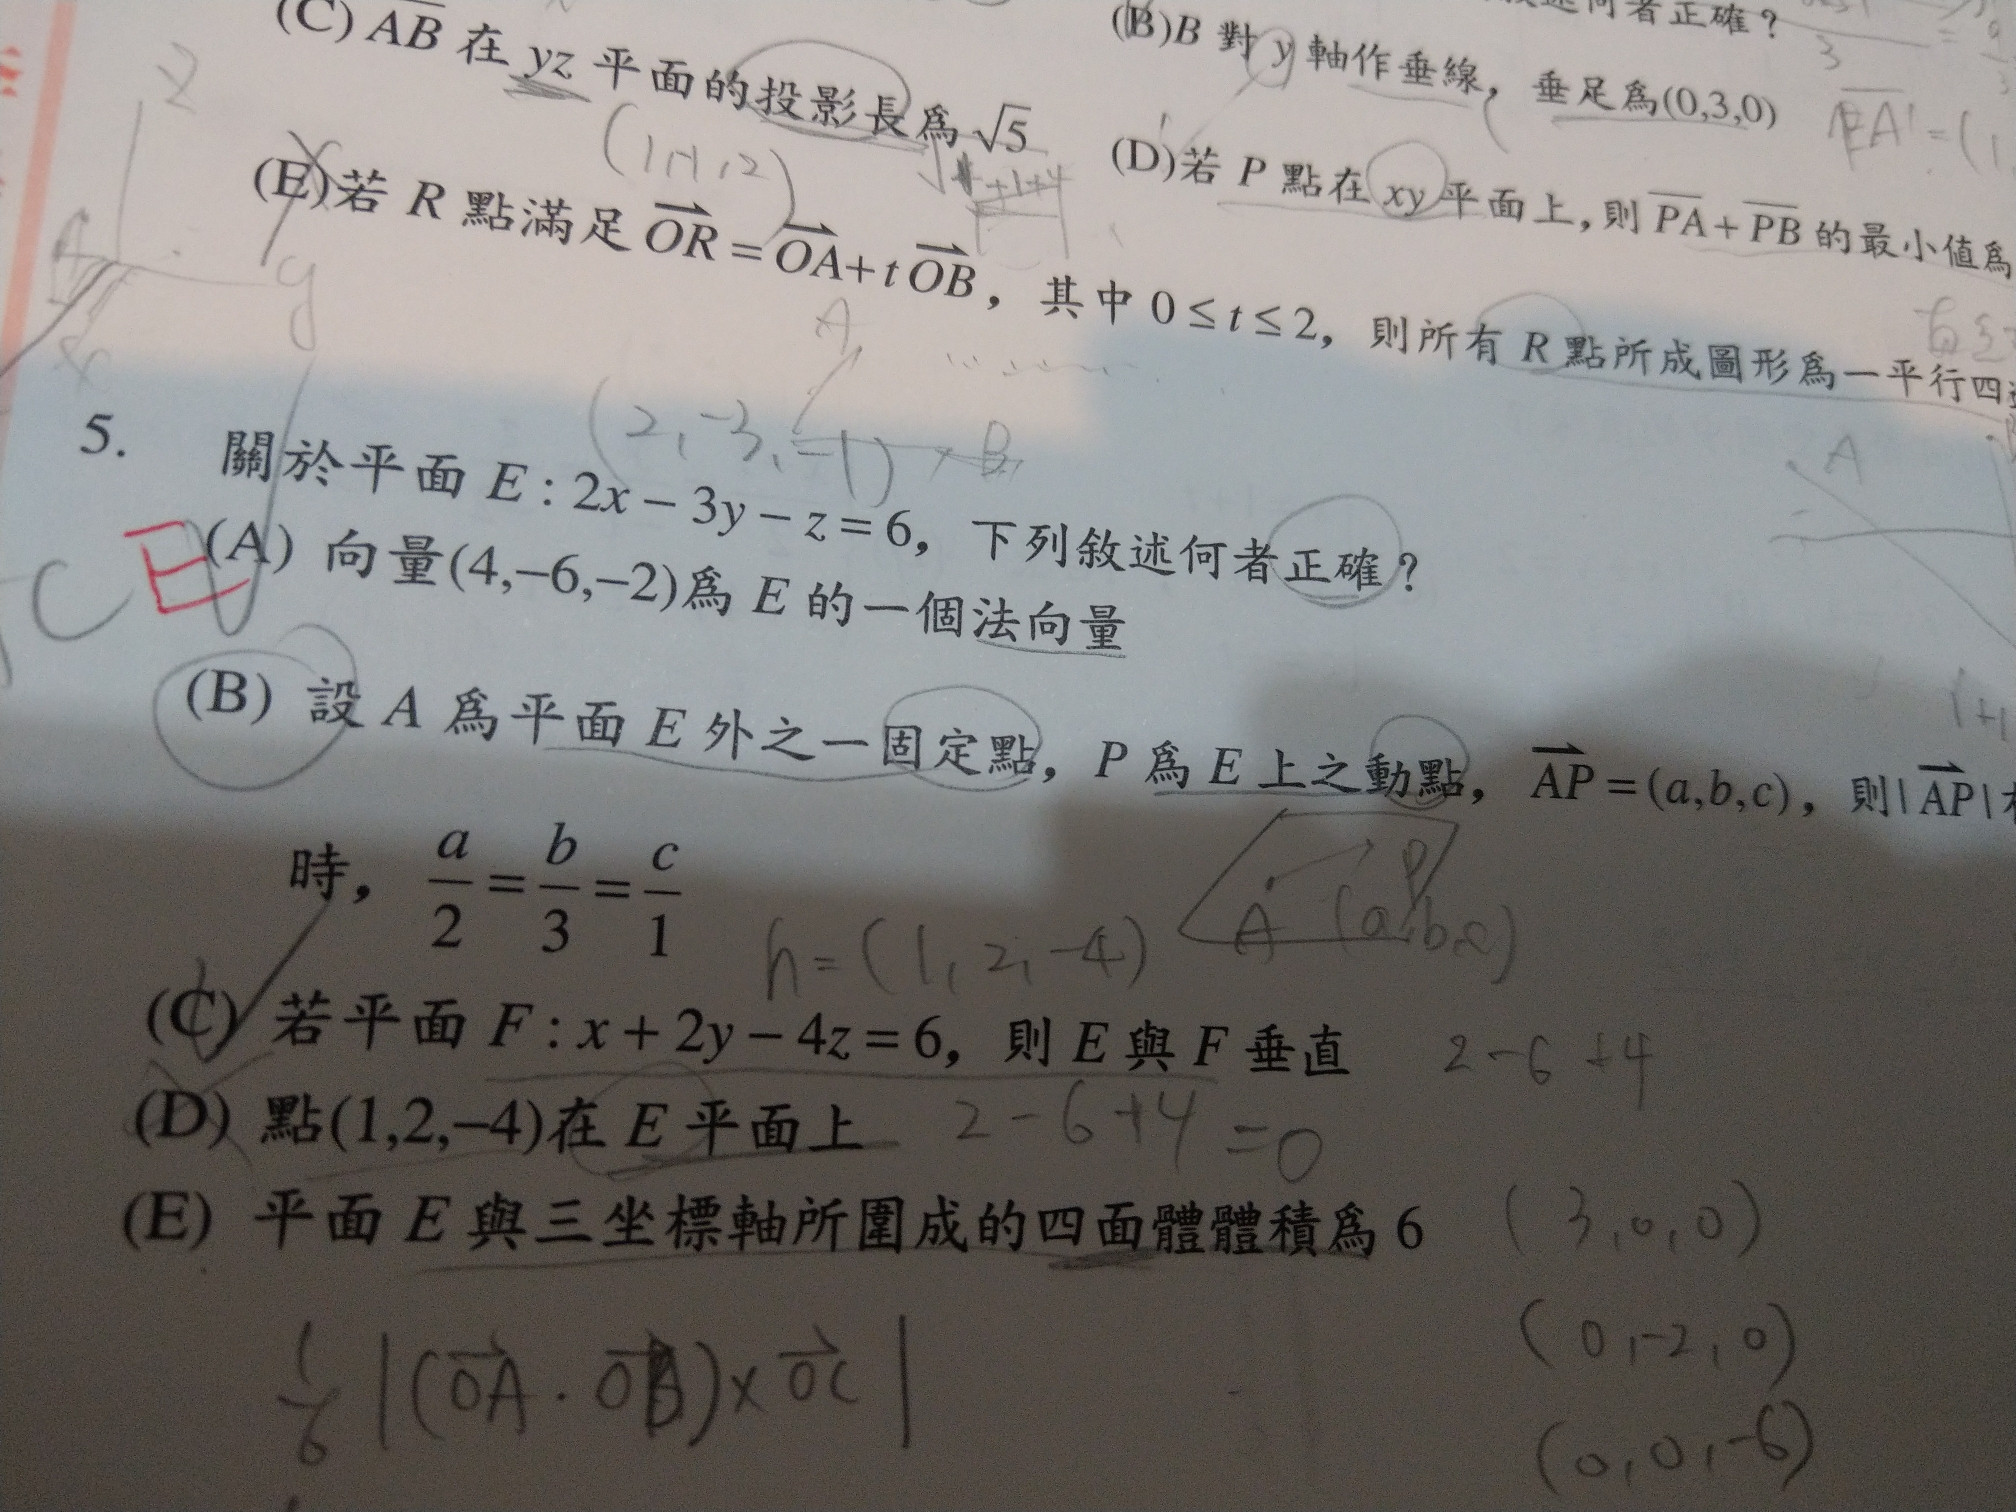 (C) AB 在 yz 平面的投影長為 √5
(B)B 對 y 軸作垂線，垂足為(0,3,0)
(1,-1,2)
(D)若 P 點在 xy 平面上，則 PA + PB 的最小值為
(E)若 R 點滿足 OR = OA + t OB，其中 0 ≤ t ≤ 2，則所有 R 點所成圖形為一平行四
(2,-3,-1)
5. 關於平面 E : 2x − 3y − z = 6，下列敘述何者正確？
(A) 向量(4,−6,−2)為 E 的一個法向量
(B) 設 A 為平面 E 外之一固定點，P 為 E 上之動點，AP = (a,b,c)，則| AP |
時，a/2 = b/3 = c/1
n = (1,2,-4)
A P (a,b,c)
(C) 若平面 F : x + 2y − 4z = 6，則 E 與 F 垂直 2-6+4
(D) 點(1,2,−4)在 E 平面上 2-6+4=0
(E) 平面 E 與三坐標軸所圍成的四面體體積為 6 (3,0,0)
(0,-2,0)
1/6 |(OA · OB) × OC|
(0,0,-6)